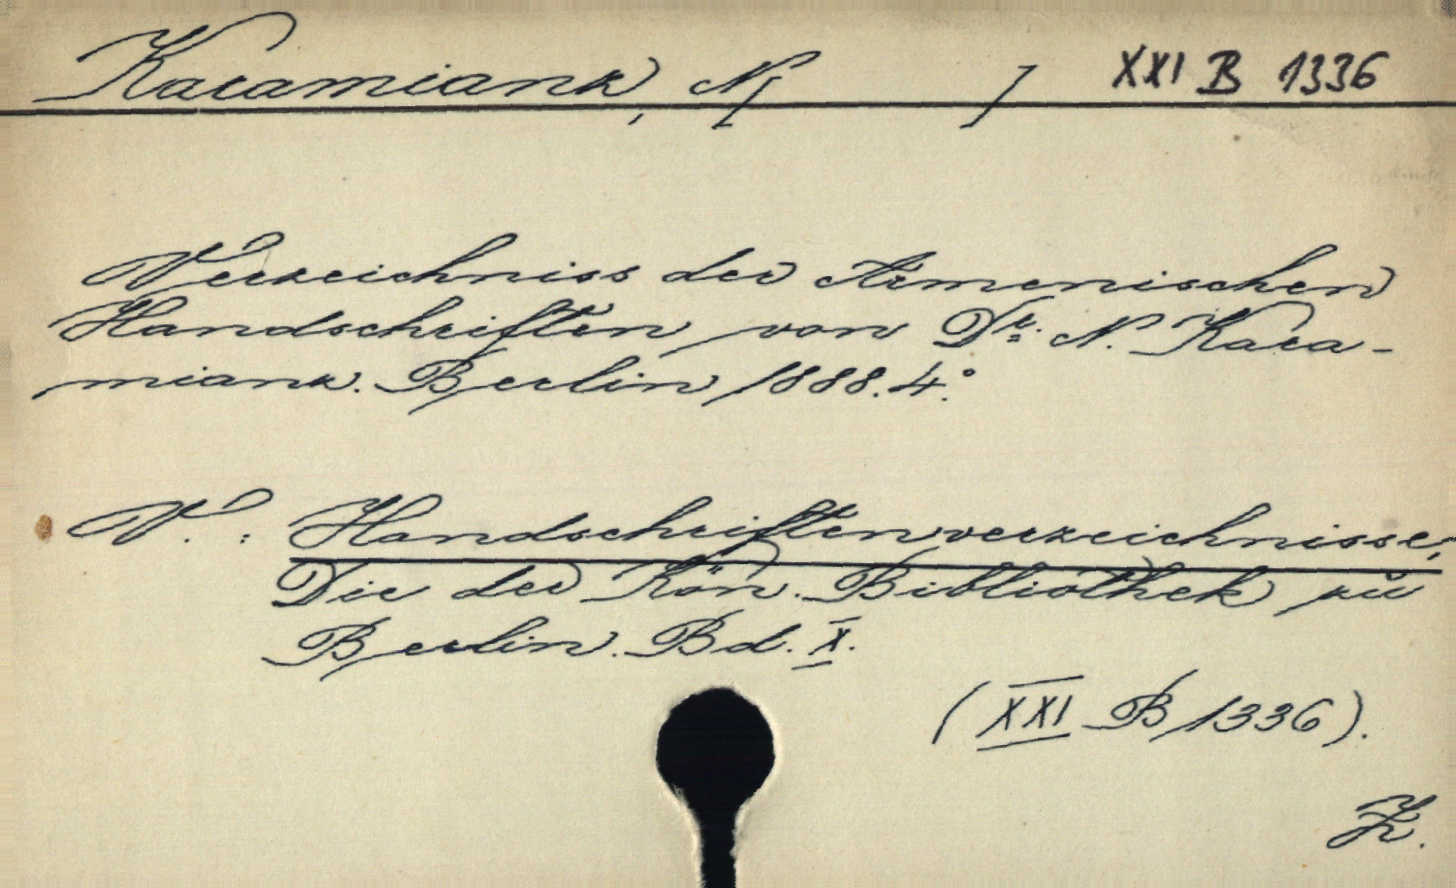 Karamianz, N[ ] XXI B 1336
Verzeichniss der Armenischen
Handschriften von Dr. N. Kara-
mianz. Berlin 1888. 4°.
V. : Handschriftenverzeichnisse,
Die der Kön. Bibliothek zu
Berlin. Bd. X.
(XXI B 1336).